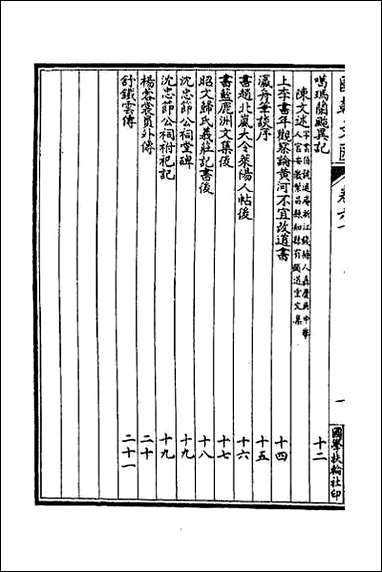 國朝文匯 卷六十一 一 國學扶輪社印
噶瑪蘭颱異記 十二
陳文述 字雲伯號退庵浙江錢塘人嘉慶庚申舉人官安徽繁昌縣知縣有頤道堂文集
上李書年觀察論黃河不宜改道書 十四
瀛舟筆談序 十五
書趙北嵐大令萊陽人帖後 十六
書藍鹿洲文集後 十七
昭文歸氏義莊記書後 十八
沈忠節公祠堂碑 十九
沈忠節公祠祔祀記 十九
楊蓉裳員外傳 二十
舒鐵雲傳 二十一